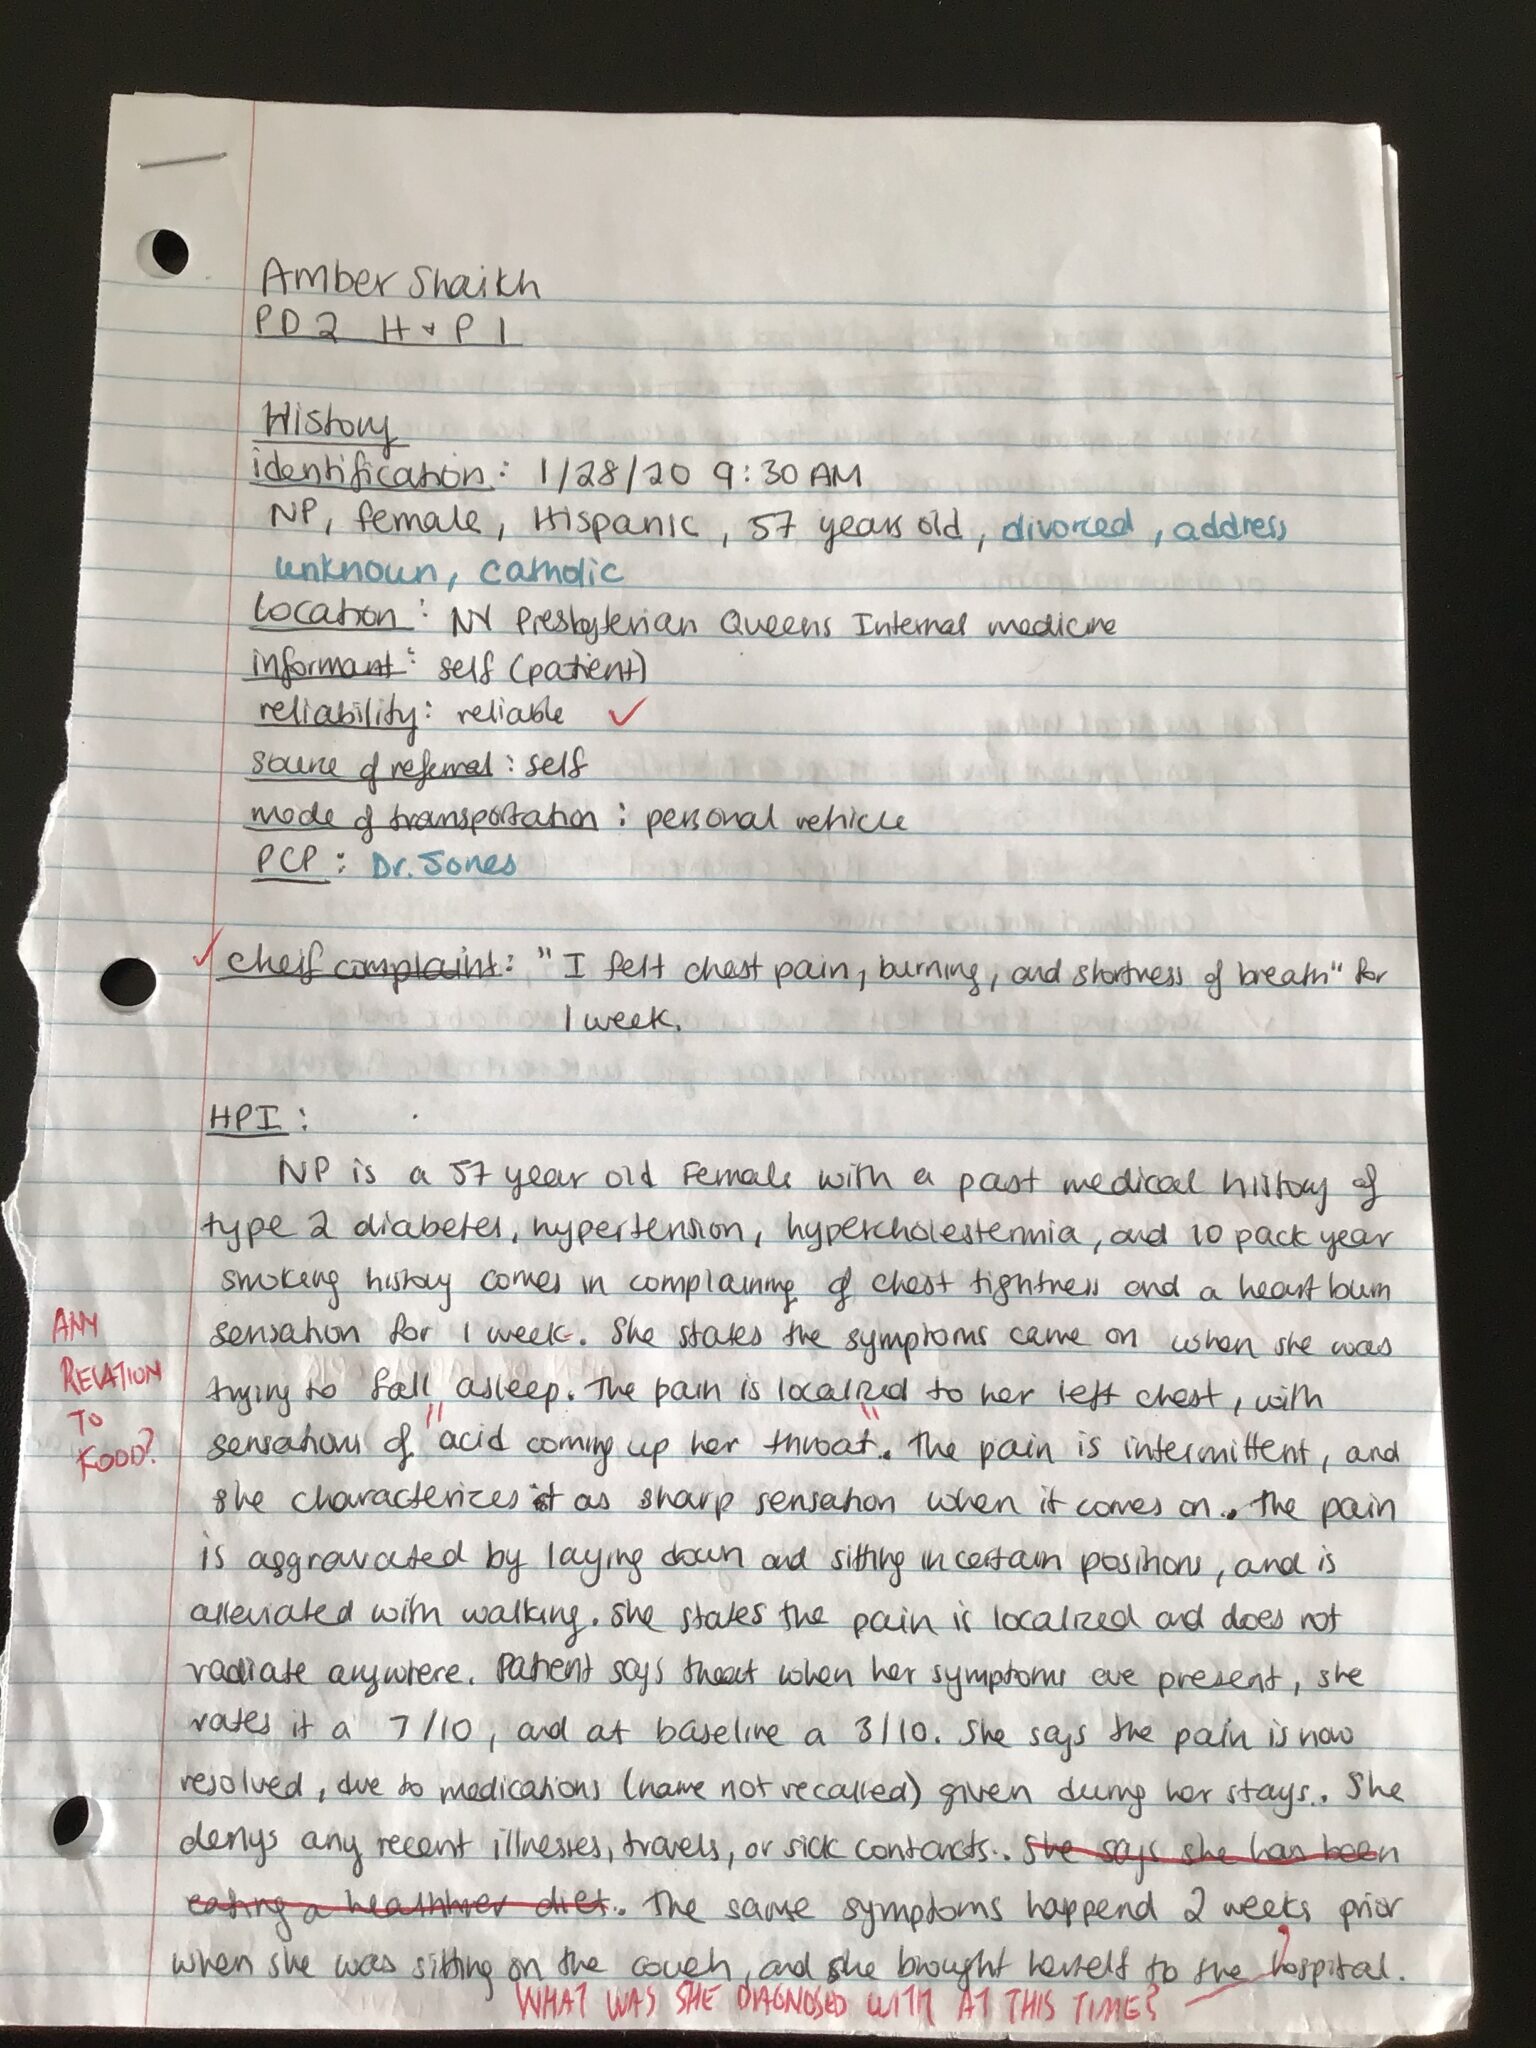 Amber Shaikh
PD2 H + P 1
History
identification: 1/28/20 9:30 AM
NP, female, Hispanic, 57 years old, divorced, address
unknown, catholic
location: NY Presbyterian Queens Internal medicine
informant: self (patient)
reliability: reliable ✓
source of referral: self
mode of transportation: personal vehicle
PCP: Dr. Jones
✓ cheif complaint: "I felt chest pain, burning, and shortness of breath" for
1 week.
HPI:
NP is a 57 year old Female with a past medical history of
type 2 diabetes, hypertension, hypercholestermia, and 10 pack year
smoking history comes in complaining of chest tightness and a heart burn
sensation for 1 week. She states the symptoms came on when she was
trying to fall asleep. The pain is localized to her left chest, with
sensations of "acid coming up her throat". The pain is intermittent, and
she characterizes it as sharp sensation when it comes on. The pain
is aggravated by laying down and sitting in certain positions, and is
alleviated with walking. She states the pain is localized and does not
radiate anywhere. Patient says that when her symptoms are present, she
rates it a 7/10, and at baseline a 3/10. She says the pain is now
resolved, due to medications (name not recalled) given during her stays. She
denys any recent illnesses, travels, or sick contacts. She says she has been
eating a healthier diet. The same symptoms happend 2 weeks prior
when she was sitting on the couch, and she brought herself to the hospital.
WHAT WAS SHE DIAGNOSED WITH AT THIS TIME?
ANY
RELATION
TO
FOOD?